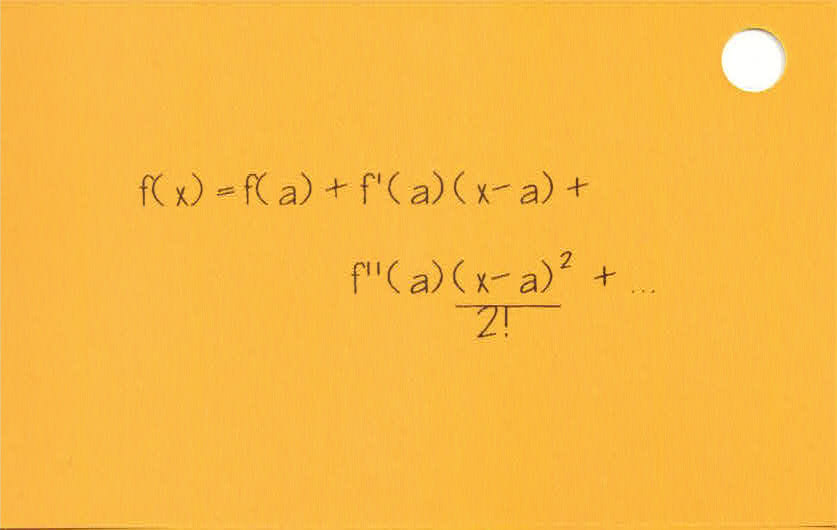 f(x) = f(a) + f'(a)(x-a) +
f''(a)(x-a)² + ...
2!